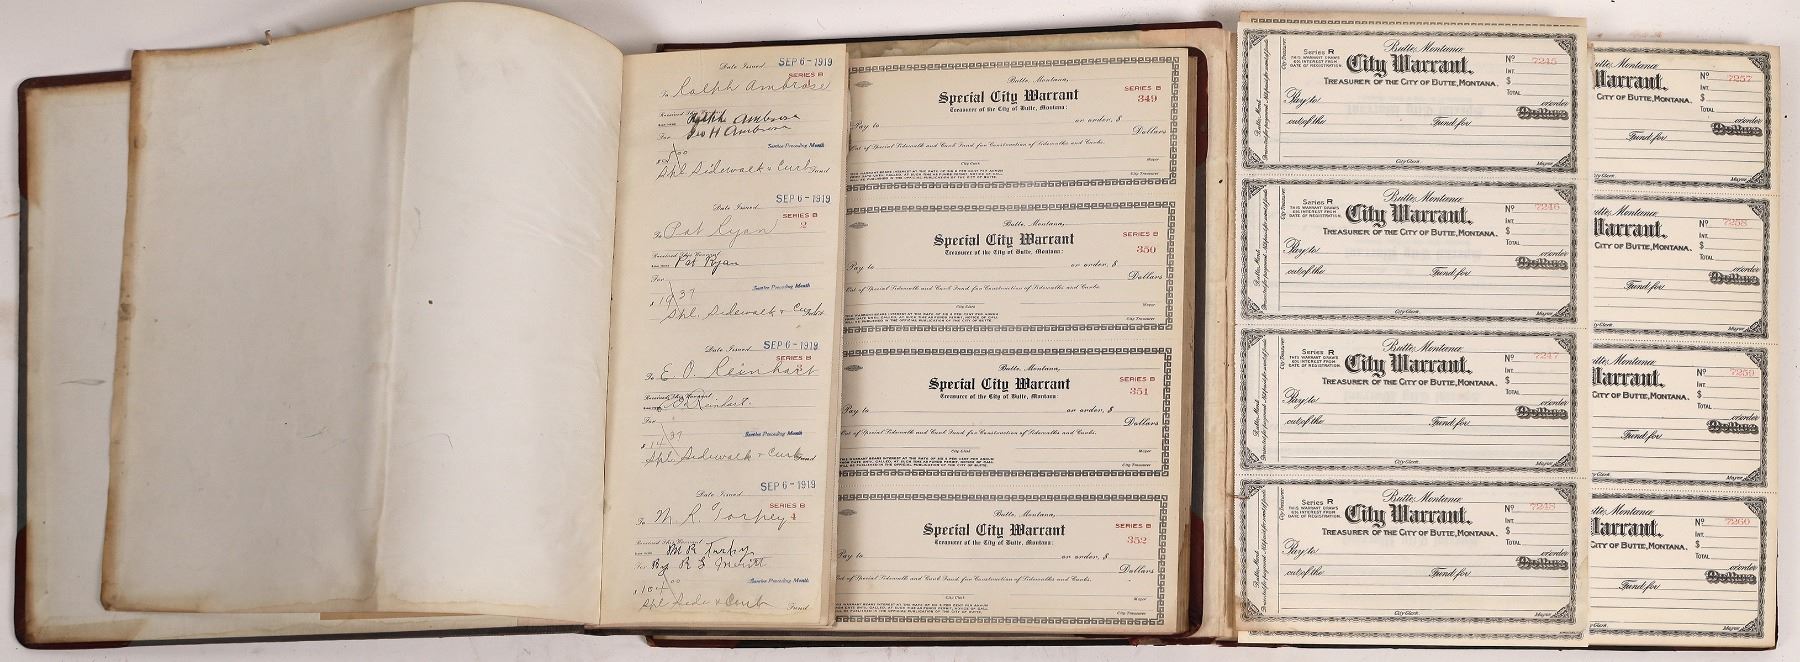 Date Issued SEP 6-1919
SERIES B
To Ralph Ambrose
Received This Warrant
Ralph Ambrose
For Geo H Ambrose
Service Preceding Month
Spl Sidewalk & Curb Fund
Date Issued SEP 6-1919
SERIES B
2
To Pat Ryan
Received This Warrant
Pat Ryan
For
Service Preceding Month
$ 19 37
Spl. Sidewalk & Cu Fund
Date Issued SEP 6-1919
SERIES B
To E. O. Reinhart
Received This Warrant
E O Reinhart.
For
Service Preceding Month
Spl. Sidewalk & Curb Fund
Date Issued SEP 6-1919
SERIES B
4
To M. R. Torpey
Received This Warrant
M R Torpey
For By R S
Service Preceding Month
$ 104 00
Spl Side & Curb Fund
Butte, Montana,
SERIES B
349
Special City Warrant
Treasurer of the City of Butte, Montana:
Pay to or order, $
Dollars
Out of Special Sidewalk and Curb Fund for Construction of Sidewalks and Curbs.
City Clerk Mayor
City Treasurer
Butte, Montana,
SERIES B
350
Special City Warrant
Treasurer of the City of Butte, Montana:
Pay to or order, $
Dollars
Out of Special Sidewalk and Curb Fund for Construction of Sidewalks and Curbs.
City Clerk Mayor
City Treasurer
Butte, Montana,
SERIES B
351
Special City Warrant
Treasurer of the City of Butte, Montana:
Pay to or order, $
Dollars
Out of Special Sidewalk and Curb Fund for Construction of Sidewalks and Curbs.
City Clerk Mayor
City Treasurer
Butte, Montana,
SERIES B
352
Special City Warrant
Treasurer of the City of Butte, Montana:
Pay to or order, $
Dollars
Out of Special Sidewalk and Curb Fund for Construction of Sidewalks and Curbs.
City Clerk Mayor
City Treasurer
Butte, Montana
Series R
THIS WARRANT DRAWS
6% INTEREST FROM
DATE OF REGISTRATION.
City Warrant.
No 7245
INT.
$
TOTAL
TREASURER OF THE CITY OF BUTTE, MONTANA.
Pay to or order
Dollars
out of the Fund for
City Clerk Mayor
Butte, Montana
Series R
THIS WARRANT DRAWS
6% INTEREST FROM
DATE OF REGISTRATION.
City Warrant.
No 7246
INT.
$
TOTAL
TREASURER OF THE CITY OF BUTTE, MONTANA.
Pay to or order
Dollars
out of the Fund for
City Clerk Mayor
Butte, Montana
Series R
THIS WARRANT DRAWS
6% INTEREST FROM
DATE OF REGISTRATION.
City Warrant.
No 7247
INT.
$
TOTAL
TREASURER OF THE CITY OF BUTTE, MONTANA.
Pay to or order
Dollars
out of the Fund for
City Clerk Mayor
Butte, Montana
Series R
THIS WARRANT DRAWS
6% INTEREST FROM
DATE OF REGISTRATION.
City Warrant.
No 7248
INT.
$
TOTAL
TREASURER OF THE CITY OF BUTTE, MONTANA.
Pay to or order
Dollars
out of the Fund for
City Clerk Mayor
utte, Montana
Warrant.
No 7257
INT.
$
TOTAL
CITY OF BUTTE, MONTANA.
or order
Dollars
Fund for
Mayor
utte, Montana
Warrant.
No 7258
INT.
$
TOTAL
CITY OF BUTTE, MONTANA.
or order
Dollars
Fund for
Mayor
utte, Montana
Warrant.
No 7259
INT.
$
TOTAL
CITY OF BUTTE, MONTANA.
or order
Dollars
Fund for
Mayor
utte, Montana
Warrant.
No 7260
INT.
$
TOTAL
CITY OF BUTTE, MONTANA.
or order
Dollars
Fund for
Mayor